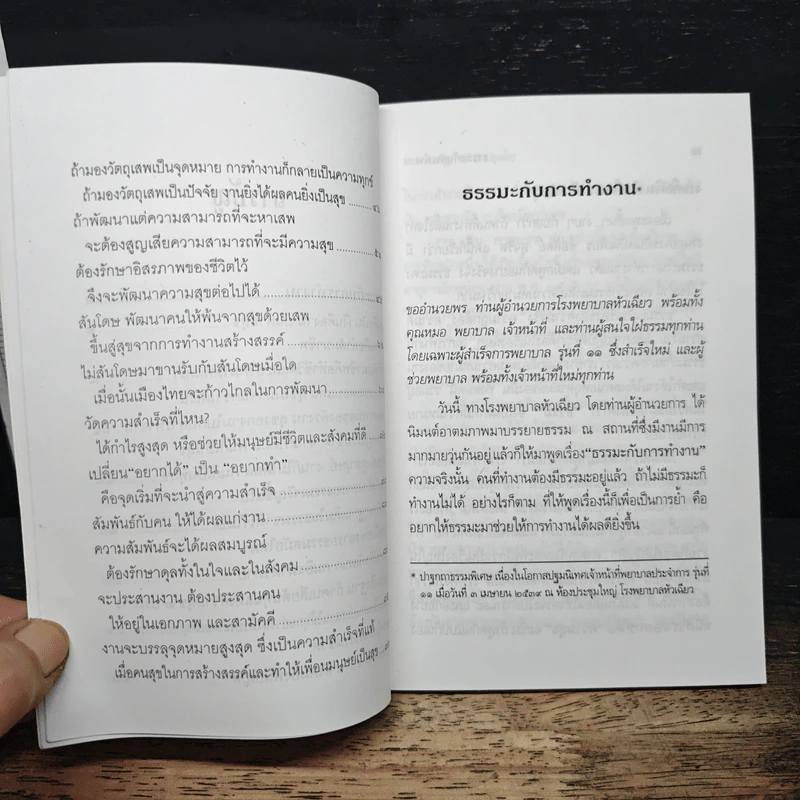 ถ้ามองวัตถุเสพเป็นจุดหมาย การทำงานก็กลายเป็นความทุกข์
ถ้ามองวัตถุเสพเป็นปัจจัย งานยิ่งได้ผลคนยิ่งเป็นสุข
ถ้าพัฒนาแต่ความสามารถที่จะหาเสพ
จะต้องสูญเสียความสามารถที่จะมีความสุข
ต้องรักษาอิสรภาพของชีวิตไว้
จึงจะพัฒนาความสุขต่อไปได้
สันโดษ พัฒนาคนให้พ้นจากสุขด้วยเสพ
ขึ้นสู่สุขจากการทำงานสร้างสรรค์
ไม่สันโดษมาขานรับกับสันโดษเมื่อใด
เมื่อนั้นเมืองไทยจะก้าวไกลในการพัฒนา
วัดความสำเร็จที่ไหน?
ได้กำไรสูงสุด หรือช่วยให้มนุษย์มีชีวิตและสังคมที่ดี
เปลี่ยน“อยากได้” เป็น “อยากทำ”
คือจุดเริ่มที่จะนำสู่ความสำเร็จ
สัมพันธ์กับคน ให้ได้ผลแก่งาน
ความสัมพันธ์จะได้ผลสมบูรณ์
ต้องรักษาดุลทั้งในใจและในสังคม
จะประสานงาน ต้องประสานคน
ให้อยู่ในเอกภาพ และสามัคคี
งานจะบรรลุจุดหมายสูงสุด ซึ่งเป็นความสำเร็จที่แท้
เมื่อคนสุขในการสร้างสรรค์และทำให้เพื่อนมนุษย์เป็นสุข
ธรรมะกับการทำงาน*
ขออำนวยพร ท่านผู้อำนวยการโรงพยาบาลหัวเฉียว พร้อมทั้ง
คุณหมอ พยาบาล เจ้าหน้าที่ และท่านผู้สนใจใฝ่ธรรมทุกท่าน
โดยเฉพาะผู้สำเร็จการพยาบาล รุ่นที่ ๑๑ ซึ่งสำเร็จใหม่ และผู้
ช่วยพยาบาล พร้อมทั้งเจ้าหน้าที่ใหม่ทุกท่าน
วันนี้ ทางโรงพยาบาลหัวเฉียว โดยท่านผู้อำนวยการ ได้
นิมนต์อาตมภาพมาบรรยายธรรม ณ สถานที่ซึ่งมีงานมีการ
มากมายวุ่นกันอยู่แล้วก็ให้มาพูดเรื่อง“ธรรมะกับการทำงาน”
ความจริงนั้น คนที่ทำงานต้องมีธรรมะอยู่แล้ว ถ้าไม่มีธรรมะก็
ทำงานไม่ได้ อย่างไรก็ตาม ที่ให้พูดเรื่องนี้ก็เพื่อเป็นการย้ำ คือ
อยากให้ธรรมะมาช่วยให้การทำงานได้ผลดียิ่งขึ้น
* ปาฐกถาธรรมพิเศษ เนื่องในโอกาสปฐมนิเทศเจ้าหน้าที่พยาบาลประจำการ รุ่นที่
๑๑ เมื่อวันที่ ๓ เมษายน ๒๕๓๙ ณ ห้องประชุมใหญ่ โรงพยาบาลหัวเฉียว